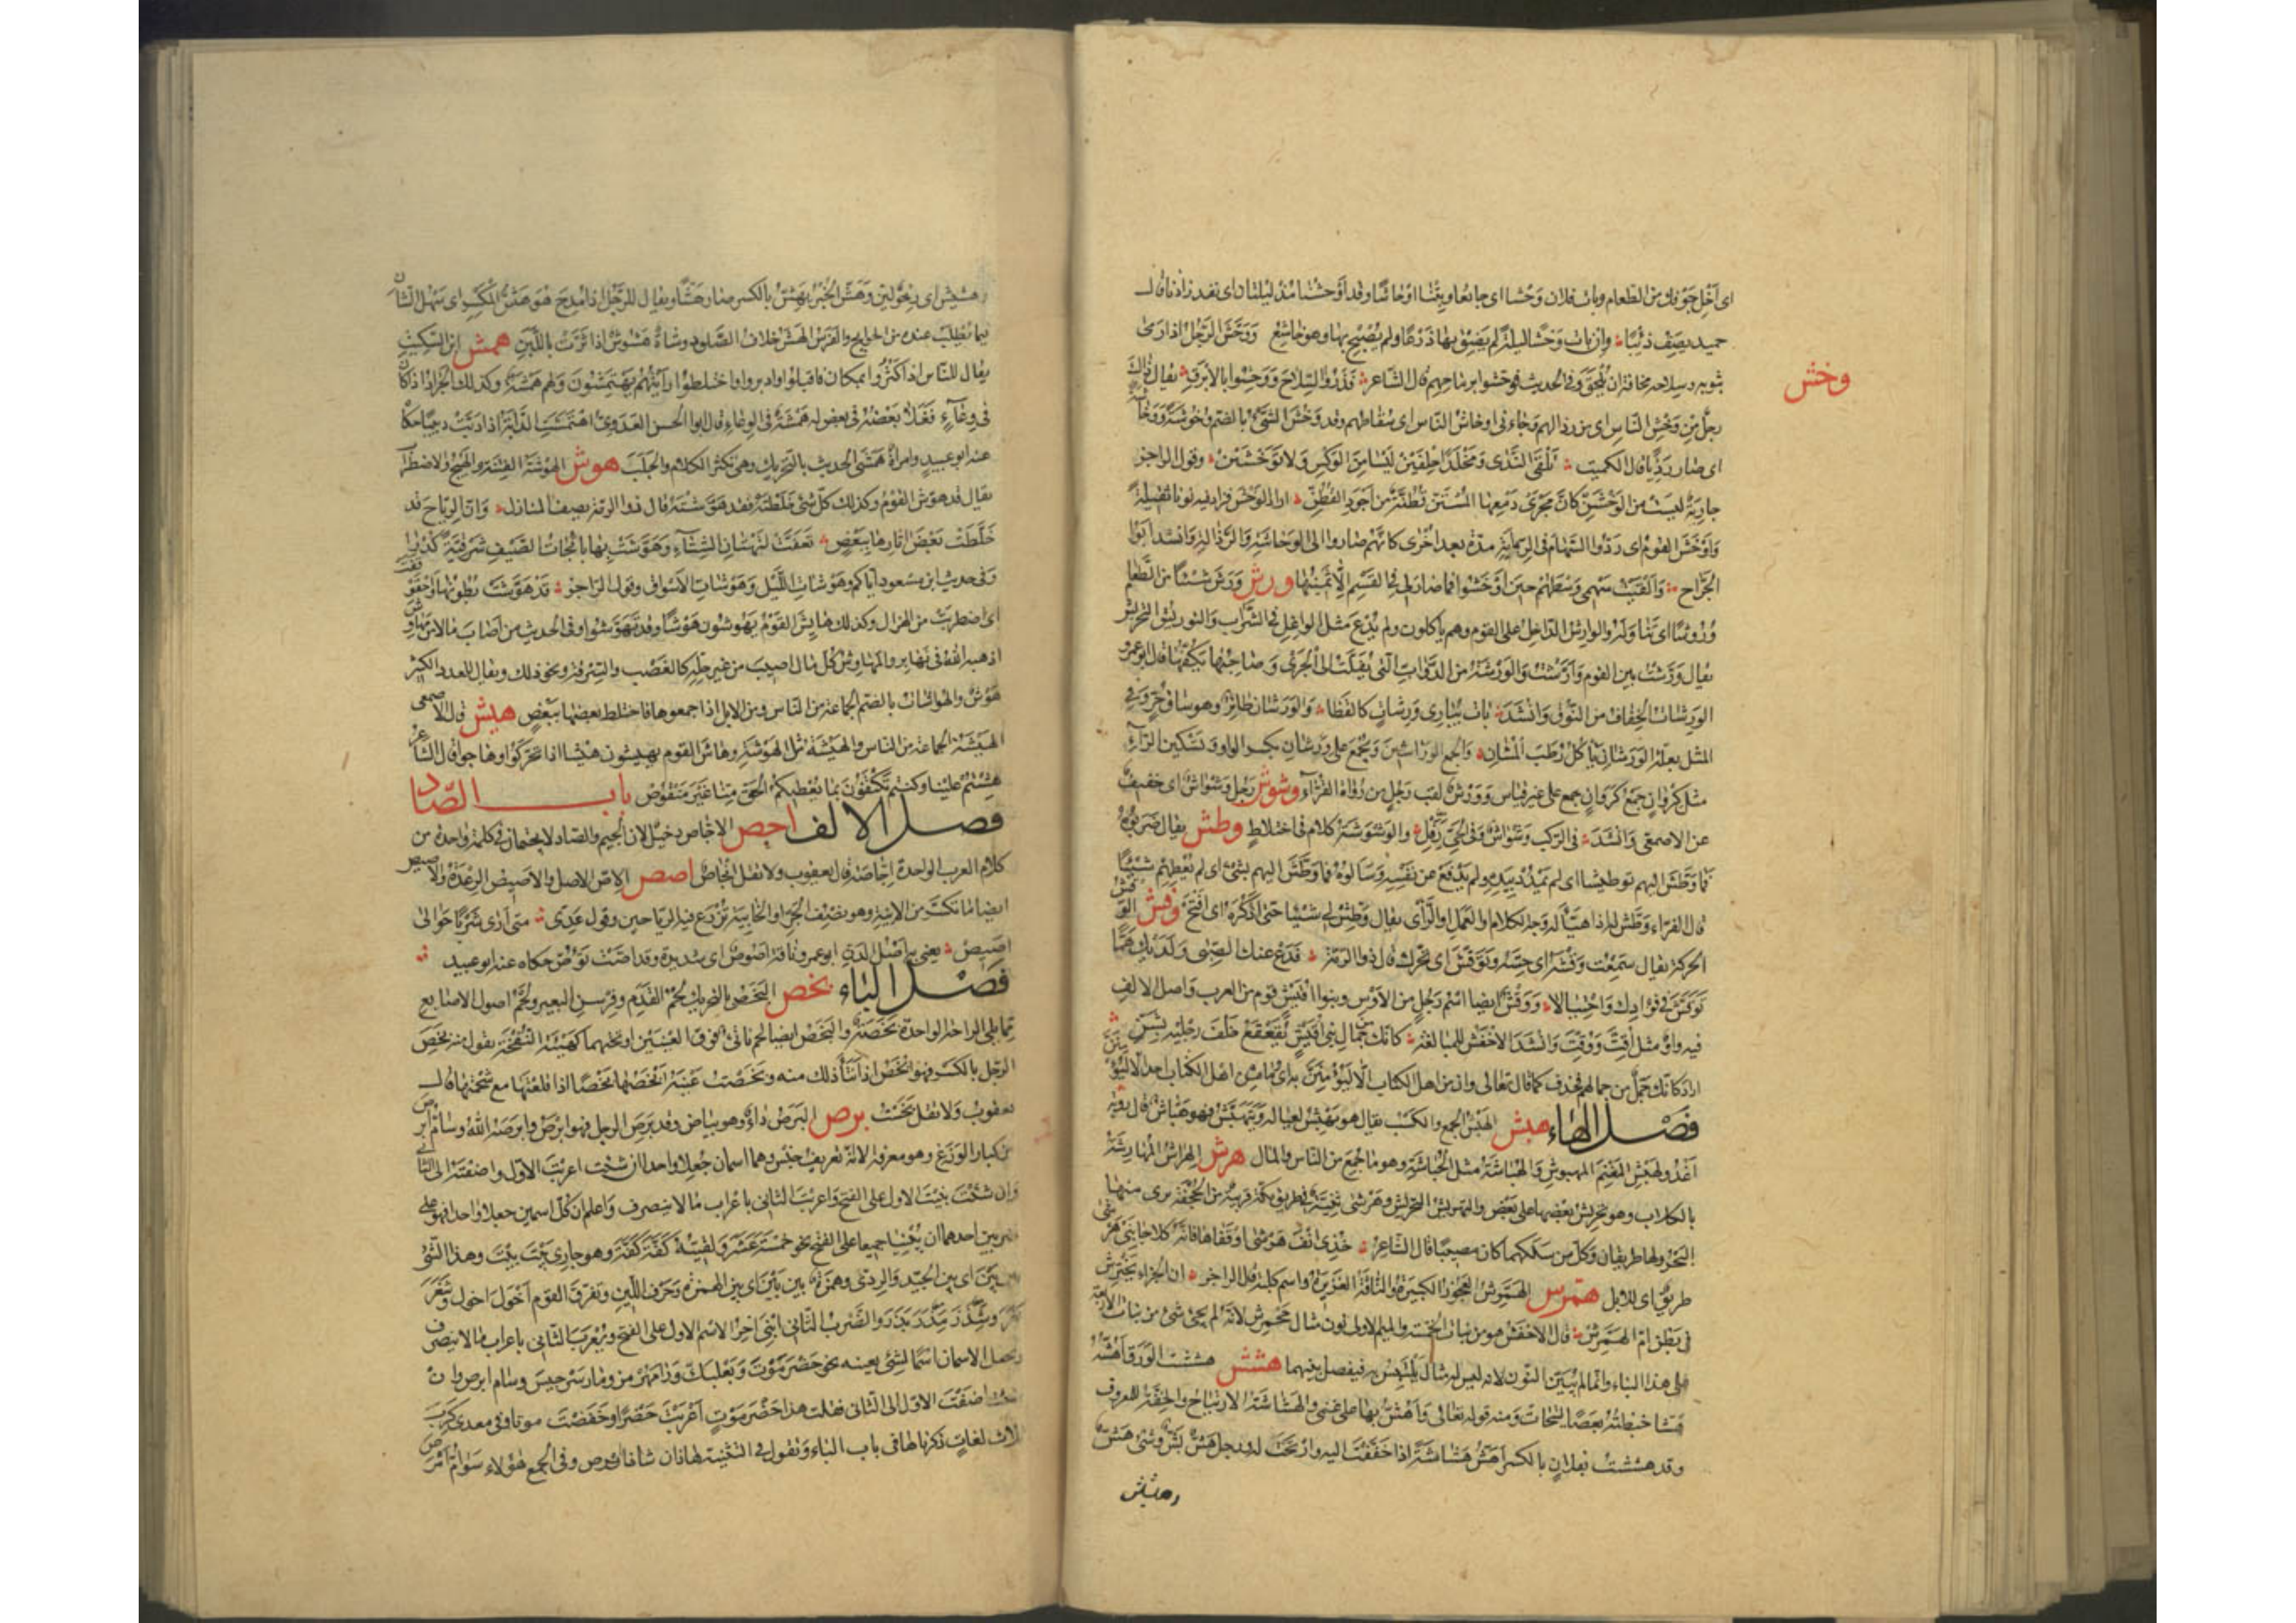 اى اَخْلِ جَوْفك من الطعام وبات فلان وَحْشا اى جائعا وبِتْنا اوحاشا وقد اَوْحَشْنا مذ ليلتان اى نفد زادنا قال
حميد يصف ذئبا وان بات وَحْشا ليلة لم يَضِقْ بها ذَرْعًا ولم يُصْبِحْ بها وهو خاشع ووَحَّشَ الرجل اذا رمى
بثوبه وسلاحه مخافة ان يُلْحَقَ وفى الحديث فوحّشوا برماحهم قال الشاعر فذَرُوا السِّلاحَ ووَحِّشوا بالاَبْرَقِ
وخش
يقال ذلك رجلٌ من وَخْشِ الناس اى من رذالهم وجاءنى اوخاش الناس اى سُقّاطهم وقد وَخُشَ الشئ بالضم وخوشة ووخا
اى صار رديّا قال الكميت تَلْقَى النَّدَى ومَخْلَدًا حليفين ليسا من الوَكْسِ ولا بوَخْشَيْنْ وقول الراجز
جاريةٌ ليست من الوَخْشَنِّ كانّ مَجْرَى دَمْعِها المُسْتَنِّ قُطْنَةٌ من اَجْوَدِ القُطُنِّ اراد الوَخْش فزاد فيه نونا ثقيلة
واَوْخَشَ القوم اى رَدُّوا السِّهام فى الرِّبابة مرّة بعد اخرى كانّهم صاروا الى الوخاشة والرَّذالة وانشد ابو
الجرّاح واَلْقَيْتُ سهمى وسطهم حين اَوْخَشُوا فما صار لى فى القسم الا ثمينها ورش وَرَشَ شيئا من الطعام
وُرُوشًا اى تناوله والوارش الداخل على القوم وهم ياكلون ولم يُدْعَ مثل الواغل فى الشراب والتوريش التحريش
يقال ورّشت بين القوم وارّشت والوَرِشَة من الدوابّ التى تَفَلَّتُ الى الجَرْى وصاحبها يكفّها قال ابو عمرو
الوَرِشات الخِفاف من النُّوق وانشد باتَ يُبارِى وَرِشاتٍ كالقَطا والوَرَشان طائر وهو ساق حُرّ وفى
المثل بعلّة الوَرَشان يأكل رُطَب المُشان والجمع الوراشين ويجمع على وِرْشان بكسر الواو وتسكين الراء
مثل كِرْوان جمع كَرَوان جمع على غير قياس ووَرْش لقب رجل من رُواة القُرّاء وشوش رجل وَشْواش اى خفيف
عن الاصمعى وانشد فى الركب وَشْواشٌ وفى الحىّ رَفِلْ والوَشْوَشَة كلام فى اختلاط وطش يقال ضربوه
فما وَطَّشَ اليهم توطيشا اى لم يمدد بيده ولم يدفع عن نفسه وسألوه فما وَطَّشَ اليهم بشئ اى لم يعطهم شيئا
قال الفراء وَطِّشْ له اذا هَيَّأ له وجه الكلام والعمل او الرأى يقال وَطِّشْ لى شيئا حتى اذكره اى افتح وقش الوَقْش
الحركة يقال سمعت وَقْشه اى حِسّه وتوقّش اى تحرّك قال ذو الرمة فدع عنك الصِّبَى ولديك هَمًّا
تَوَقَّشَ فى فؤادك واحتيالا ووَقْش ايضا اسم رجل من الاوس وبنو اُقَيْش قوم من العرب واصل الالف
فيه واو مثل اُقِّتَتْ ووُقِّتَتْ وانشد الاخفش للنابغة كانّك من جمال بنى اُقَيْشٍ يُقَعْقَعُ خلفَ رجليه بِشَنِّ
اراد كانّك جمل من جمالهم فحذف كما قال تعالى وان من اهل الكتاب الا ليؤمننّ به اى ما من اهل الكتاب احد الا ليؤمننّ
فصل الهاء هبش الهَبْش الجمع والكسب يقال هو يَهْبِش لعياله ويَتَهَبَّش فهو هَبّاش قال رؤبة
اغدو لهَبْشِ المَغْنَمِ المهبوش والهُباشة مثل الحُباشة وهو ما جُمع من الناس والمال هرش الهِراش المهارشة
بالكلاب وهو تحريش بعضها على بعض والتهريش التحريش وهَرْشَى ثنيّة فى طريق مكة قريبة من الجُحْفة يرى منها
البحر ولها طريقان وكل من سلكهما كان مصيبا قال الشاعر خذى اَنْفَ هَرْشَى او قفاها فانّه كلا جانبى هَرْشَى
طريق اى للابل همرش الهَمَّرِش العجوز الكبيرة والناقة الغزيرة واسم كلبة قال الراجز ان الجِراء تَخْتَرِش
فى بطن امّ الهَمَّرِش قال الاخفش هو من بنات الخمسة والميم الاولى نون مثال جَحْمَرِش لانّه لم يجئ شئ من بنات الاربعة
على هذا البناء وانما لم يتبيّن النون لانه ليس له مثال يلتبس به فيفصل بينهما هشش هششت الورق اَهُشّه
هَشًّا خبطته بعصا ليتحاتّ ومنه قوله تعالى واَهُشُّ بها على غنمى والهشاشة الارتياح والخِفّة للمعروف
وقد هَشِشْتُ بفلان بالكسر اَهَشّ هشاشة اذا خففت اليه وارتحت له ورجل هَشّ بَشّ وشئ هَشّ
وهشيش
وهشيش اى رِخْو لين وهَشَّ الخبز يَهِشّ بالكسر صار هَشّا ويقال للرجل اذا مدح هو هَشّ المَكْسِر اى سهل الشأن
فيما يُطلب عنده من الحوايج والفرس الهَشّ خلاف الصَّلود وشاة هَشوش اذا ثَرّت باللبن همش ابن السكيت
يقال للناس اذا كثروا بمكان فاقبلوا وادبروا واختلطوا رأيتهم يهتمشون ولهم هَمْشة وكذلك الجراد اذا كان
فى وعاء فغلا بعضه فى بعض له هَمْشة فى الوعاء قال ابو الحسن العدوى اهتمشت الدابّة اذا دبّت دبيبا حكاه
عنه ابو عبيد وامرأة هَمَشَى الحديث بالتحريك وهى تكثر الكلام والجَلَب هوش الهَوْشة الفتنة والهَيْج والاضطراب
يقال قد هوّش القوم وكذلك كل شئ خلطته فقد هوّشته قال ذو الرمة يصف المنازل وانّ الرياح قد
خلّطت بعض اثارها ببعض تعفّت لتَهْتان الشتاء وهوّشت بها نائجات الصيف شرقيّة كُدْرا
وفى حديث ابن مسعود اياكم وهَوْشات الليل وهَوْشات الاسواق وقول الراجز قد هوّشت بطونها واحقوقفت
اى اضطربت من الهزال وكذلك هاش القوم يهوشون هَوْشا وقد تهوّشوا وفى الحديث من اصاب مالا من مهاوش
اذهبه الله فى نهابر والمهاوش كل مال اصيب من غير حلّه كالغصب والسرقة ونحو ذلك ويقال للعدد الكثير
هَوْش والهُواشات بالضم الجماعة من الناس ومن الابل اذا جمعوها فاختلط بعضها ببعض هيش قال الاصمعى
الهَيْشة الجماعة من الناس والهَيْشة مثل الهَوْشة وهاش القوم يهيشون هَيْشا اذا تحرّكوا وهاجوا قال الشاعر
هِشْتم علينا وكنتم تكتفون بما نعطيكم الحقّ منّا غير منقوص باب الصاد
فصل الالف اجص الاجّاص دخيل لان الجيم والصاد لا يجتمعان فى كلمة واحدة من
كلام العرب الواحدة اِجّاصة قال يعقوب ولا تقل اِنْجاص اصص الاِصّ الاصل والاصيص الرعدة والاصيص
ايضا ما تكسّر من الانية وهو نصف الجَرّ او الخابية تُزْرَع فيه الرياحين وقول عدى متى اَرَى شَرْبًا حوالى
اَصيص يعنى به اصل الدَّنّ ابو عمرو ناقة اَصوص اى شديدة وقد اصّت تؤصّ حكاه عنه ابو عبيد
فصل الباء بخص البَخَص بالتحريك لحم القدم وفِرْسِن البعير ولحم اصول الاصابع
مما يلى الراحة الواحدة بَخَصة والبَخَص ايضا لحم ناتئ فوق العينين او تحتهما كهيئة النفخة تقول منه بَخِصَ
الرجل بالكسر فهو اَبْخَص اذا نتأ ذلك منه وبَخَصْت عينه اَبْخَصها بَخْصا اذا قلعتها مع شحمتها قال
يعقوب ولا تقل بخست برص البَرَص داء وهو بياض وقد بَرِصَ الرجل فهو اَبْرَص وابرصه الله وسامّ ابرص
من كبار الوَزَغ وهو معرفة لانه تعريف جنس وهما اسمان جعلا واحدا ان شئت اعربت الاول واضفته الى الثانى
وان شئت بنيت الاول على الفتح واعربت الثانى باعراب ما لا ينصرف واعلم ان كل اسمين جعلا واحدا فهو على
ضربين احدهما ان يُبْنَيا جميعا على الفتح نحو خمسةَ عشرَ ولقيته كَفَّةَ كَفَّةَ وهو جارى بيتَ بيتَ وهذا الشئ
بين بين اى بين الجيد والردى وهمزة بين بين اى بين الهمزة وحرف اللين وتفرّق القوم اَخْوَلَ اَخْوَلَ وشَغَرَ
بَغَرَ وشَذَرَ مَذَرَ والضرب الثانى ان يبنى اخر الاسم الاول على الفتح ويعرب الثانى باعراب ما لا ينصرف
ويجعل الاسمان اسما لشئ بعينه نحو حَضْرَمَوْت وبَعْلَبَكّ ورامَهُرْمُز ومارسَرْجِس وسامّ ابرص وان
شئت اضفت الاول الى الثانى فقلت هذا حَضْرُمَوْتٍ اعربت حضرا وخفضت موتا وفى معدى كرب
ثلاث لغات ذكرناها فى باب الباء وتقول فى التثنية هاذان سامّا ابرص وفى الجمع هؤلاء سوامّ ابرص